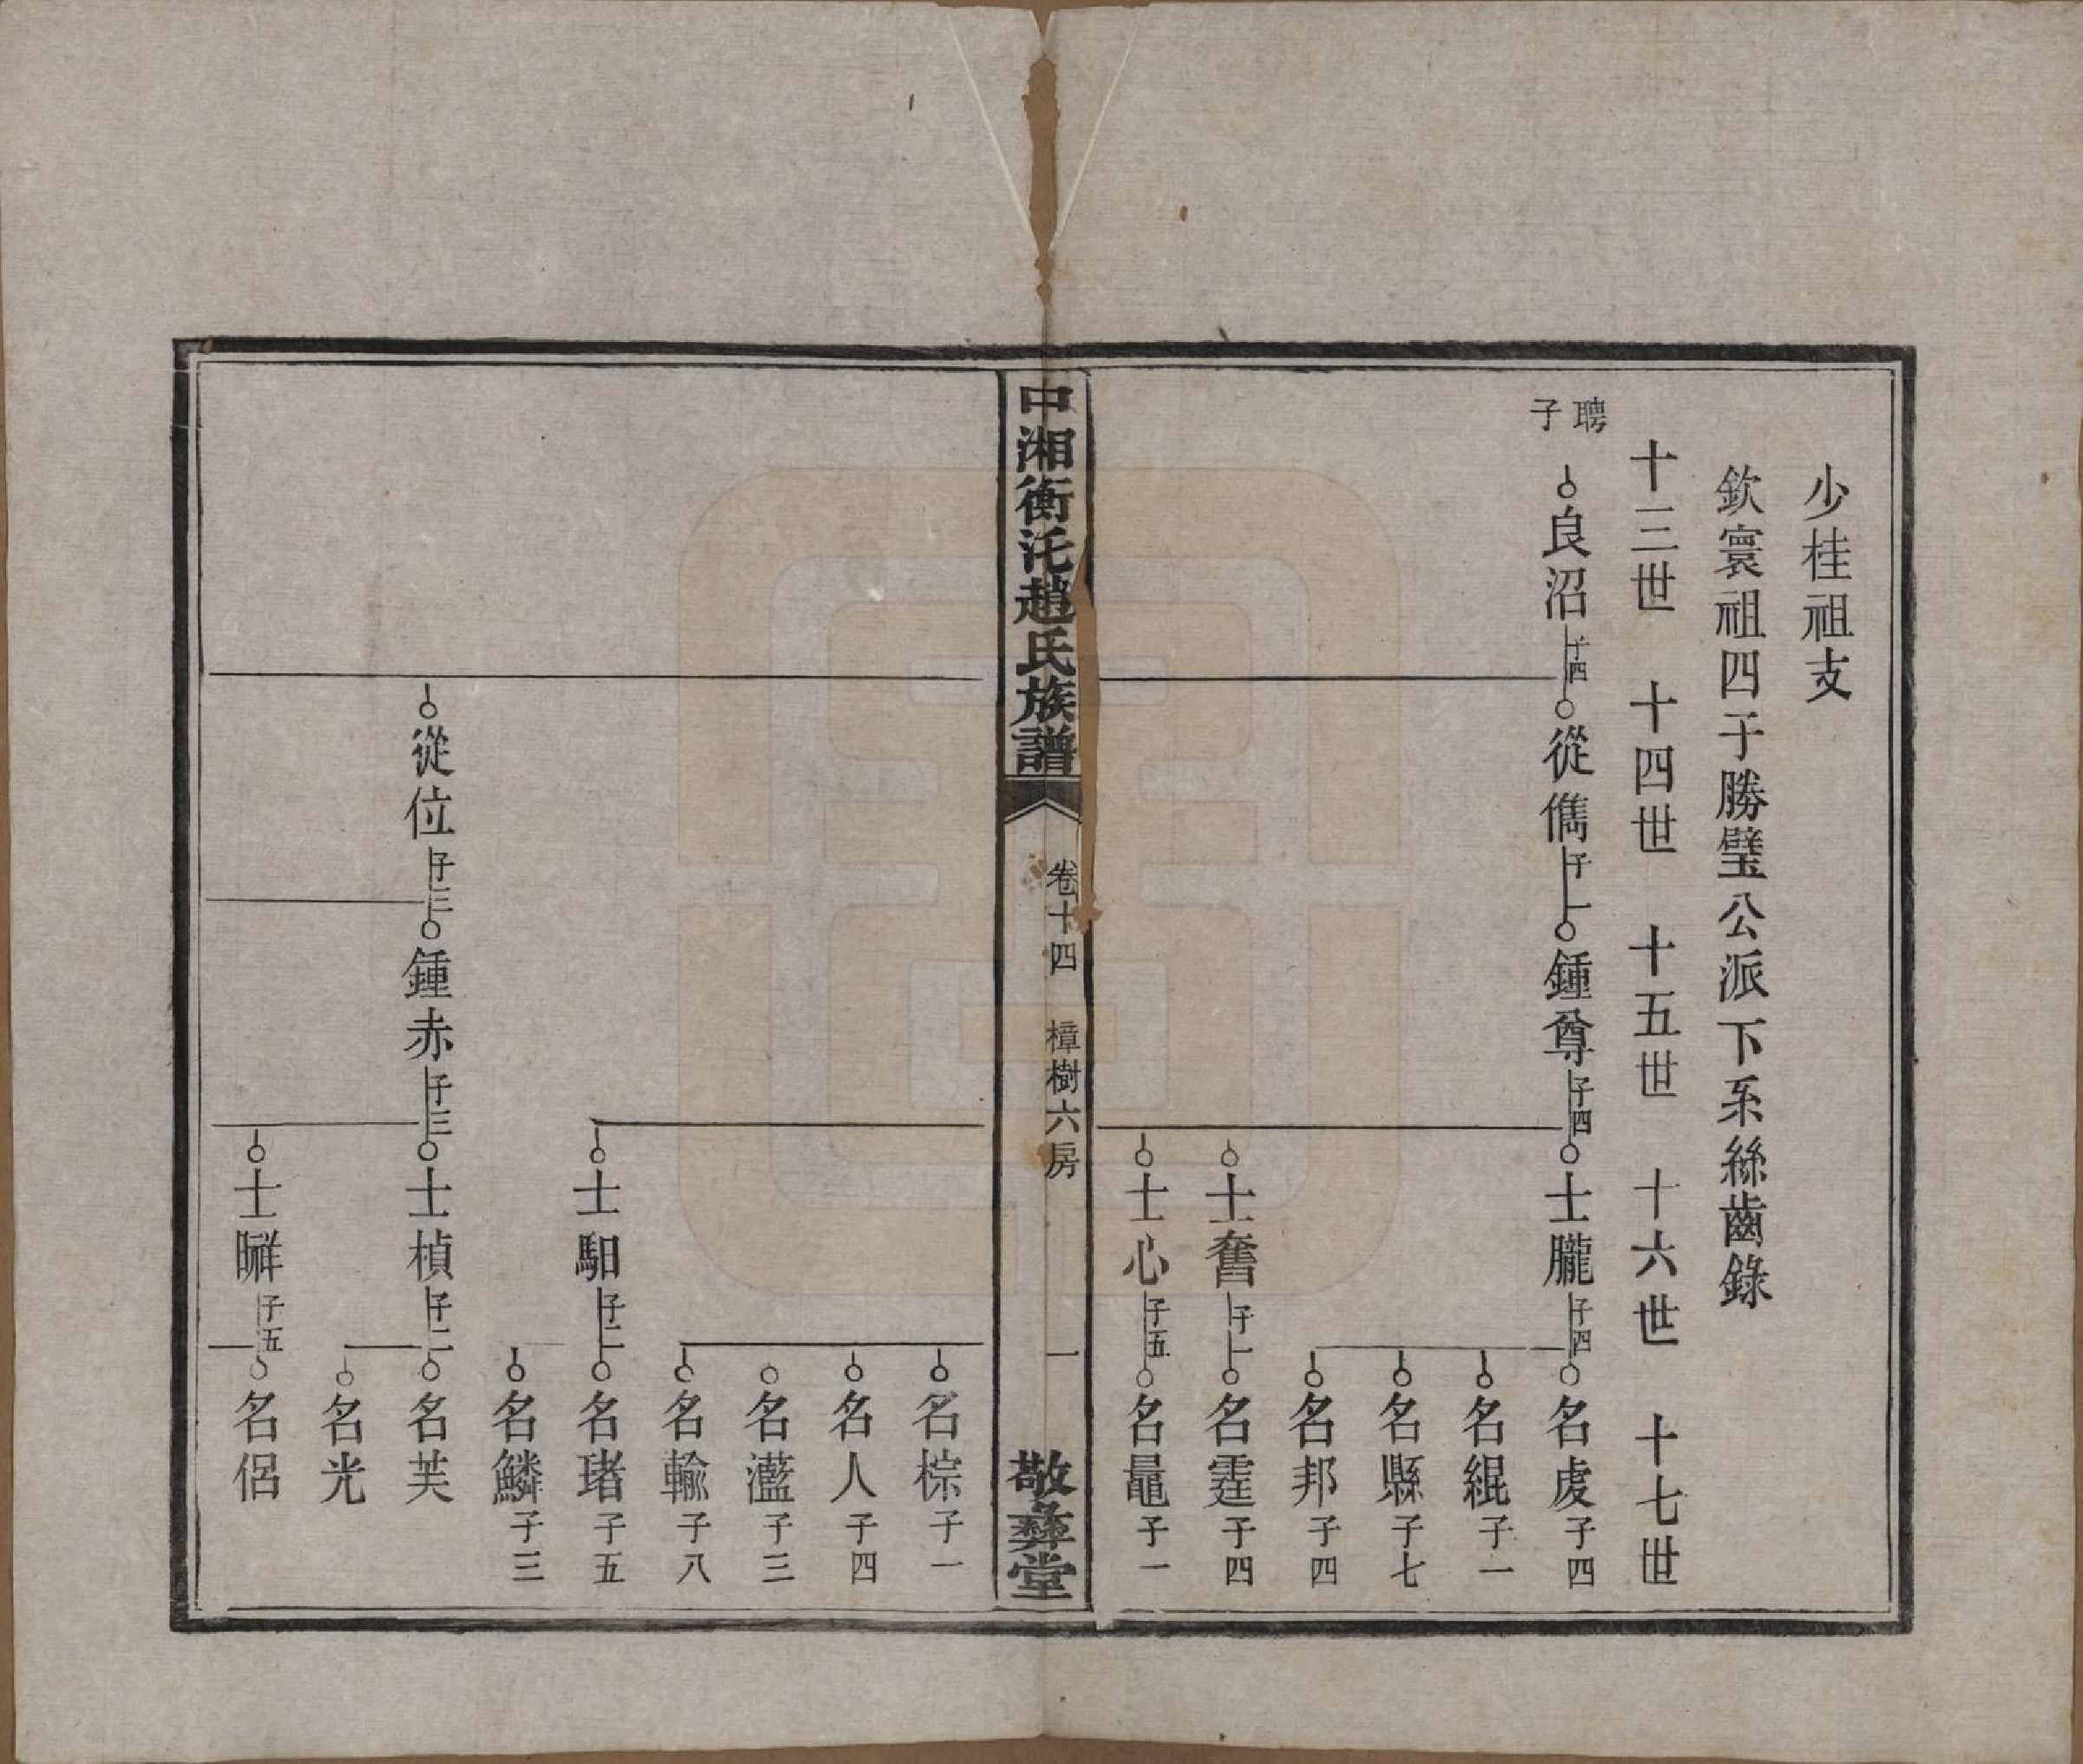 少桂祖支
欽寰祖四子勝璧公派下系絲齒錄
十三世 十四世 十五世 十六世 十七世
聘子
良沼子四 從儁子一 鍾尊子四 士朧子四 名虔子四
名緄子一
名縣子七
名邦子四
士奮子一 名霆子四
士心子五 名鼂子一
中湘衡汑趙氏族譜 卷十四 樟樹六房 一 敬彝堂
名棕子一
名人子四
名灆子三
名輸子八
士馹子二 名瑎子五
名鱗子三
從位子三 鍾赤子三 士楨子二 名芙
名光
士暀子五 名侶